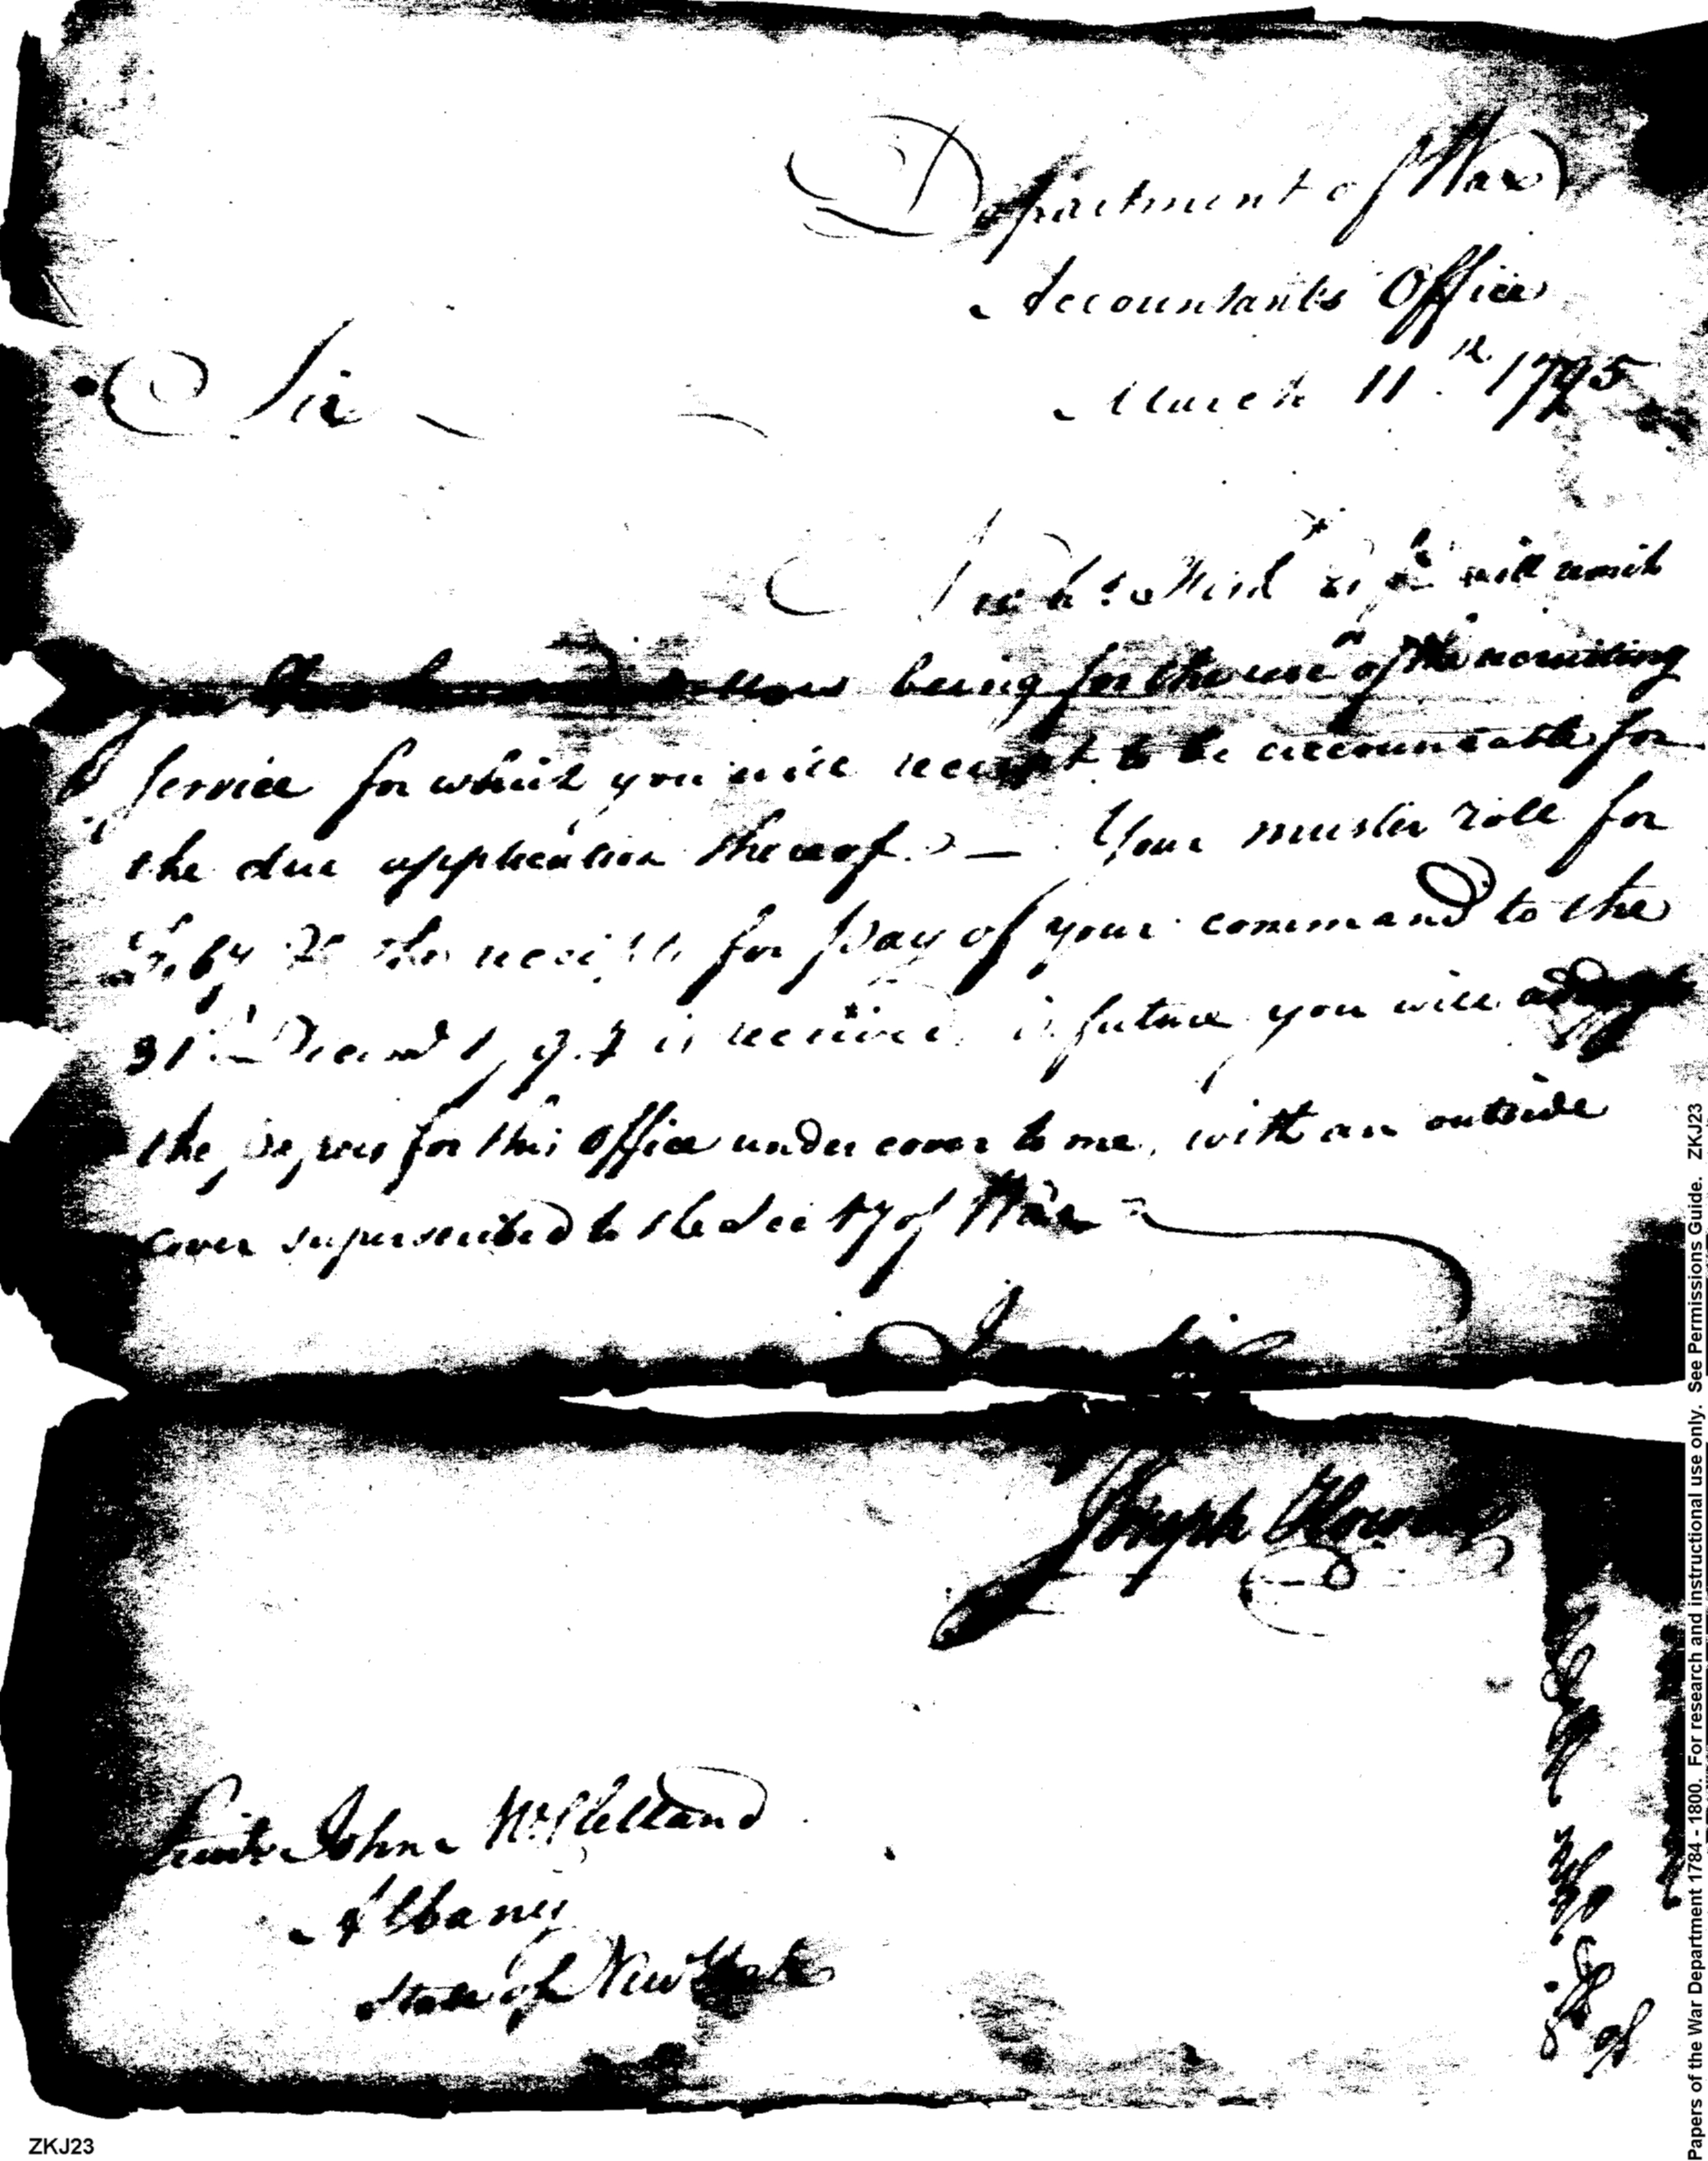 Department of War
Accountants Office
March 11th 1795
Sir
will remit
you dollars being for the use of the recruiting
service for which you will receipt to be accountable for
the due application thereof. — Your muster roll for
Feby & the receipts for pay of your command to the
31st Decemr is received, in future you will
the papers for this Office under cover to me, with an outside
cover superscribed to the Secty of War
I am Sir
Joseph Howell
Lieut. John McClelland
Albany
State of New York
ZKJ23
Papers of the War Department 1784 - 1800. For research and instructional use only. See Permissions Guide. ZKJ23